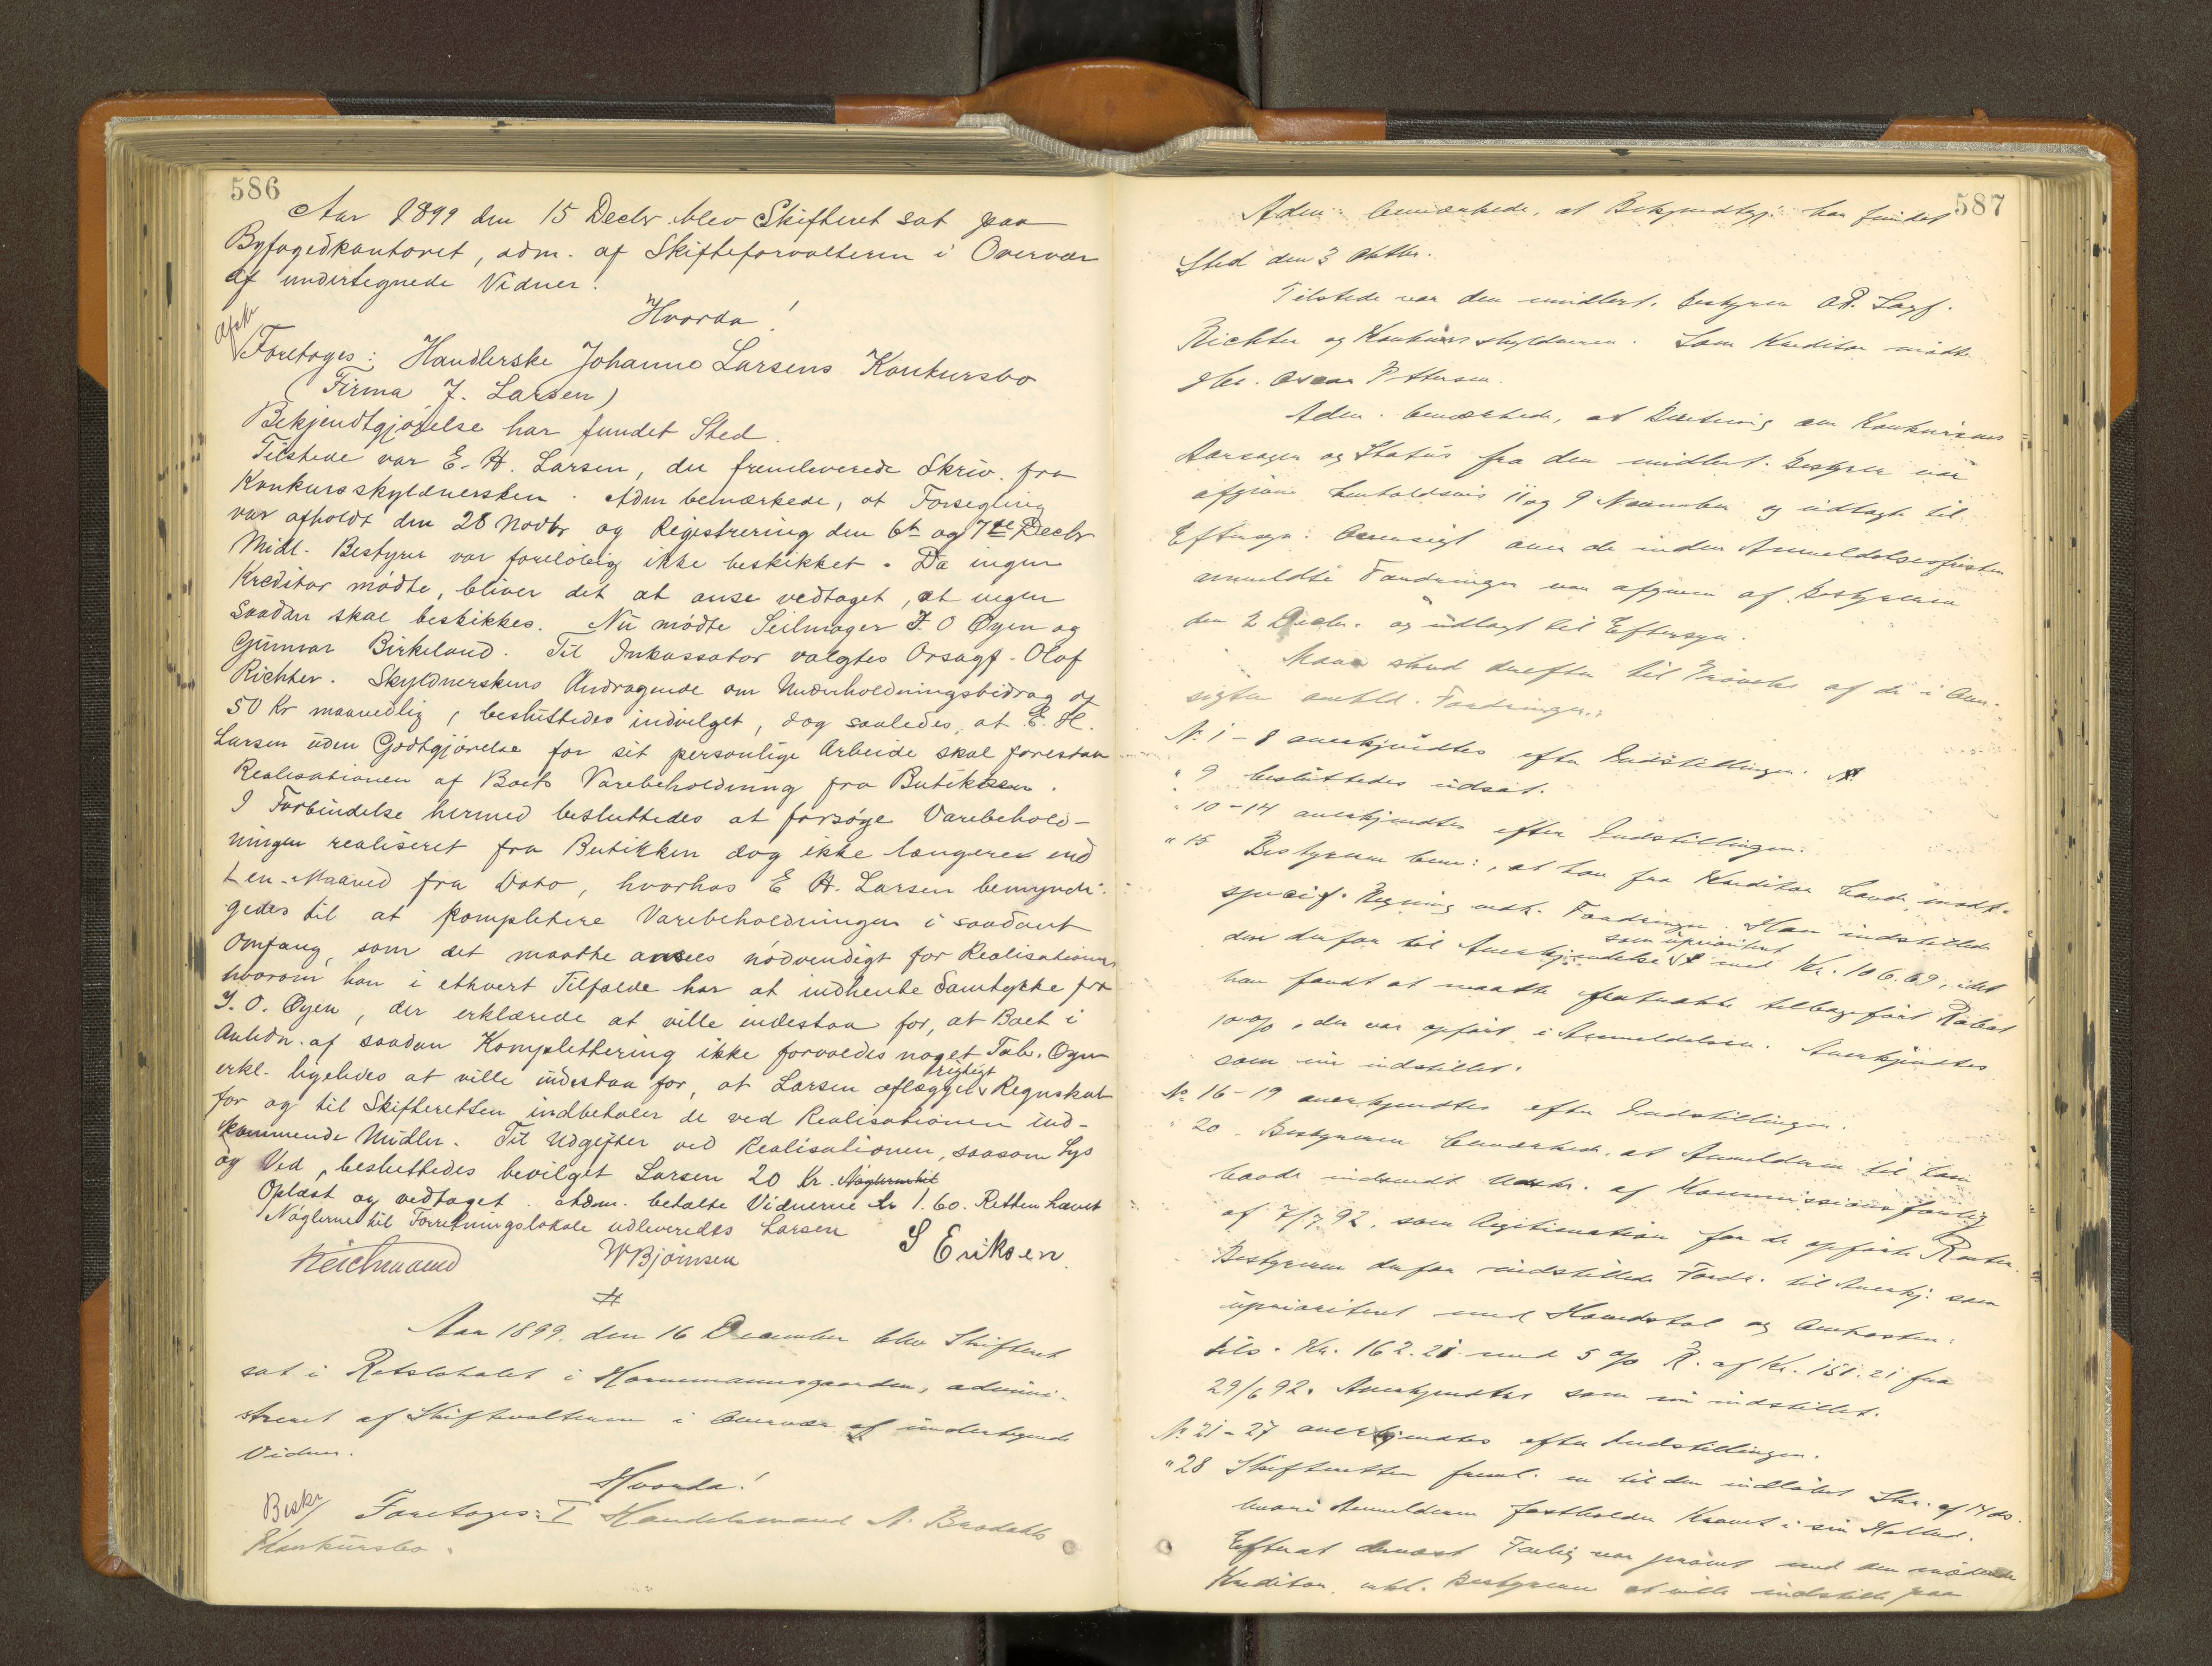 586
Aar 1899 den 15 Decbr. blev Skifteret sat paa
Byfogedkontoret, adm. af Skifteforvalteren i Overvær
af undertegnede Vidner.
Hvorda!
Afskr
Foretoges: Handlerske Johanne Larsens Konkursbo
(Firma J. Larsen)
Bekjendtgjørelse har fundet Sted.
Tilstede var E. H. Larsen, der fremleverede Skriv. fra
Konkursskyldnersken. Adm bemærkede, at Forsegling
var afholdt den 28 Novbr og Registrering den 6te og 7de Decbr
Midl. Bestyrer var foreløbig ikke beskikket. Da ingen
Kreditor mødte, bliver det at anse vedtaget, at ingen
saadan skal beskikkes. Nu mødte Seilmager J. O Øyen og
Gunnar Birkeland. Til Inkassator valgtes Orsagf. Olaf
Richter. Skyldnerskens Andragende om Underholdningsbidrag af
50 Kr maanedlig, besluttedes indvilget, dog saaledes, at E. H.
Larsen uden Godtgjørelse for sit personlige Arbeide skal forestaa
Realisationen af Boets Varebeholdning fra Butikken.
I Forbindelse hermed besluttedes at forsøge Varebehold-
ningen realiseret fra Butikken dog ikke længere end
1 en Maaned fra Dato, hvorhos E H. Larsen bemyndi-
gedes til at komplettere Varebeholdningen i saadant
Omfang, som det maatte ansees nødvendigt for Realisationen
hvorom han i ethvert Tilfælde har at indhente Samtykke fra
J. O. Øyen, der erklærede at ville indestaa for, at Boet i
Anledn. af saadan Komplettering ikke forvoldes noget Tab. Øyen
erkl. ligeledes at ville indestaa for, at Larsen aflægger rigtigt Regnskab
for og til Skifteretten indbetaler de ved Realisationen ind-
kommende Midler. Til Udgifter ved Realisationen, saasom Lys
og Ved, besluttedes bevilget Larsen 20 Kr. Nøglerne til
Oplæst og vedtaget. Adm. betalte Vidnerne Kr 1.60. Retten hævet
Nøglerne til Forretningslokale udleveredes Larsen
Reichwaed
W Bjørnsen
S Eriksen.
#
Aar 1899. den 16 December blev Skifteret
sat i Retslokalet i Hornemannsgaarden, admini-
streret af Skifteforvalteren i Overvær af undertegnede
Vidner.
Hvorda!
Beskr
Foretoges: I Handelsmand A. Brodahls
Konkursbo.
587
Adm: bemærkede, at Bekjendtgj: har fundet
Sted den 3 Oktbr.
Tilstede var den midlert. Bestyrer O.R. Sagf.
Richter og Konkursskyldneren. Som Kreditor mødte
Hr. Oscar Pettersen.
Adm. bemærkede, at Beretning om Konkursens
Aarsager og Status fra den midlert. Bestyrer var
afgivne henholdsvis 11 og 9 November og udlagte til
Eftersyn: Oversigt over de inden Anmeldelsesfristen
anmeldte Fordringer var afgiven af Bestyreren
den 2 Decbr. og udlagt til Eftersyn.
Man skred derefter til Prøvelse af de i Over-
sigten anmeldte Fordringer:
No 1-8 anerkjendtes efter Indstillingen.
" 9 besluttedes udsat.
" 10-14 anerkjendtes efter Indstillingen.
" 15 Bestyreren bem:, at han fra Kreditor havde modt.
specif. Regning vedk. Fordringen. Han indstillede
den derfor til Anerkjendelse som uprioritert med Kr. 106.69, idet
han fandt at maatte fratrække tilbageført Rabat
10%, der var opført i Anmeldelsen. Anerkjendtes
som nu indstillet.
No 16-19 anerkjendtes efter Indstillingen.
" 20. Bestyreren bemærkede, at Anmelderen til ham
havde indsendt Udskr. af Kommissionsforlig
af 7/7 92, som Legitimation for de opførte Renter.
Bestyreren derfor indstillede Fordr. til Anerkj. som
uprioriteret med Hovedstol og Omkostn:
tils. Kr. 162.21 med 5 % R. af Kr. 151.21 fra
29/6 92. Anerkjendtes som nu indstillet.
No 21-27 anerkjendtes efter Indstillingen.
" 28 Skifteretten freml. en til den indløbet Skr. af 14 ds.
hvori Anmelderen fastholder Kravet i sin Helhed.
Efterat dernæst Forlig var prøvet med den mødende
Kreditor, erkl. Bestyreren at ville indstille paa